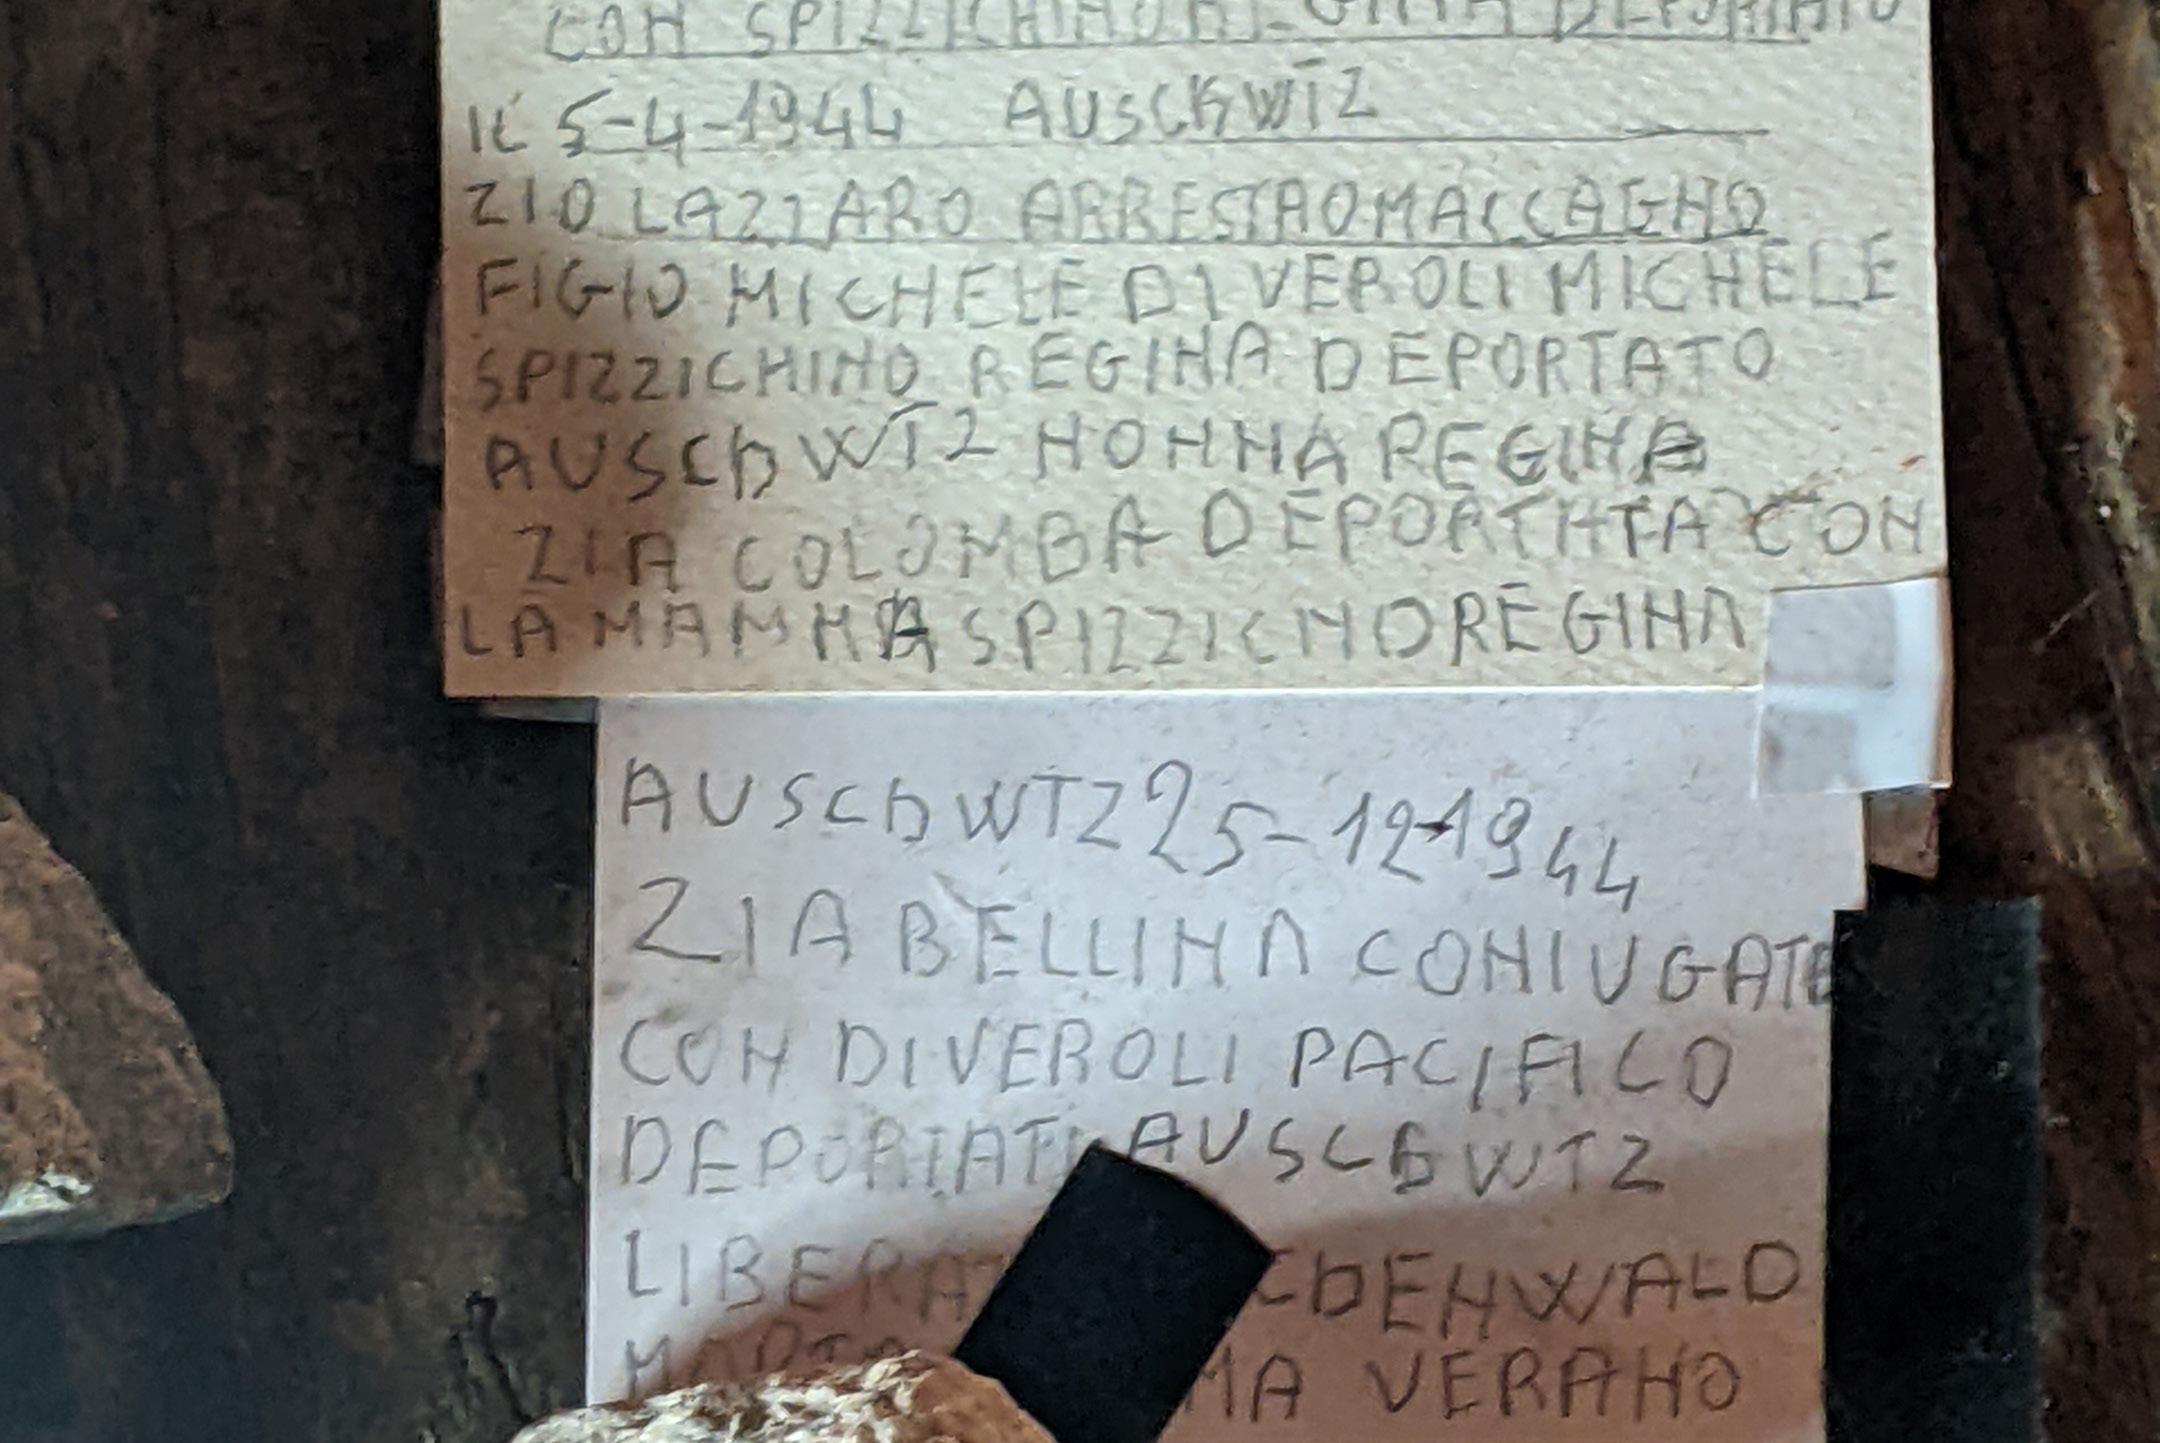 CON SPIZZICHINO DEPORTATO
IL 5-4-1944 AUSCHWTZ
ZIO LAZZARO ARRESTAO MACCAGNO
FIGIO MICHELE DI VEROLI MICHELE
SPIZZICHINO REGINA DEPORTATO
AUSCHWTZ NONNA REGINA
ZIA COLOMBA DEPORTATTA CON
LA MAMMA SPIZZICNO REGINA
AUSCHWTZ 25-12-1944
ZIA BELLINA CONIUGATE
CON DI VEROLI PACIFICO
DEPORTATI AUSCHWTZ
CDENWALD
VERANO